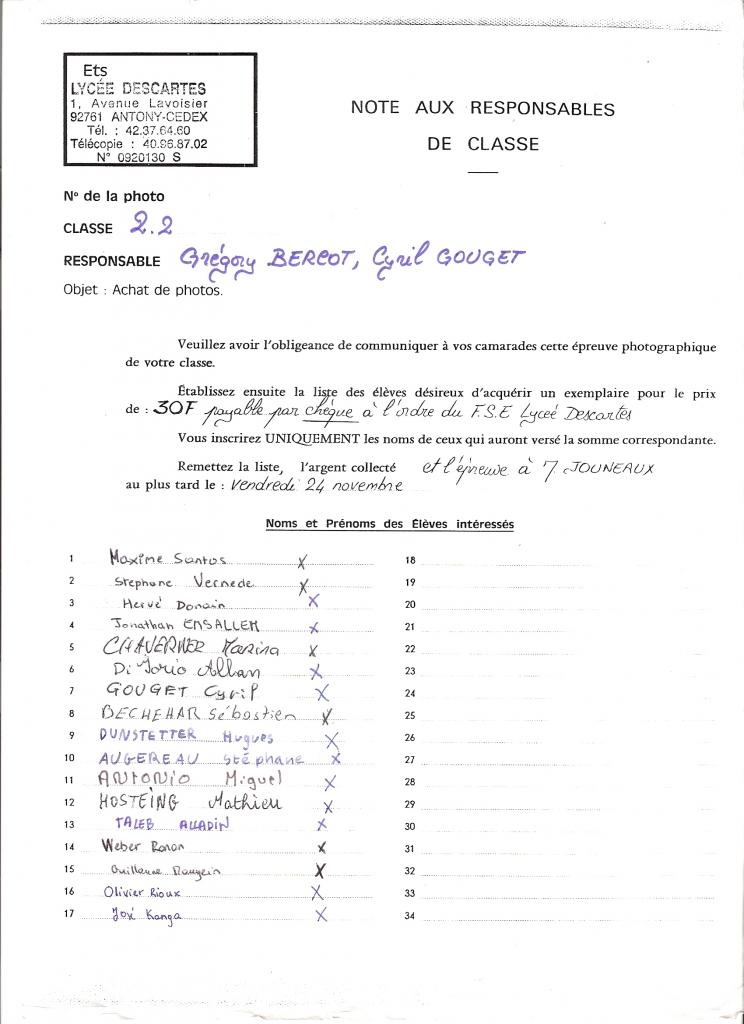 Ets
LYCÉE DESCARTES
1, Avenue Lavoisier
92761 ANTONY-CEDEX
Tél. : 42.37.64.60
Télécopie : 40.96.87.02
N° 0920130 S
NOTE AUX RESPONSABLES
DE CLASSE
N° de la photo
CLASSE 2.2
RESPONSABLE Grégory BERCOT, Cyril GOUGET
Objet : Achat de photos.
Veuillez avoir l'obligeance de communiquer à vos camarades cette épreuve photographique
de votre classe.
Établissez ensuite la liste des élèves désireux d'acquérir un exemplaire pour le prix
de : 30F payable par chèque à l'ordre du F.S.E Lyceé Descartes
Vous inscrirez UNIQUEMENT les noms de ceux qui auront versé la somme correspondante.
Remettez la liste, l'argent collecté et l'épreuve à JOUNEAUX
au plus tard le : Vendredi 24 novembre
Noms et Prénoms des Élèves intéressés
1 Maxime Santos X
2 Stephane Vernede X
3 Hervé X
4 Jonathan ENSALLEM X
5 Marina X
6 Di Iorio Allan X
7 GOUGET Cyril X
8 BECHEHAR Sébastien X
9 DUNSTETTER Hugues X
10 AUGEREAU Stéphane X
11 ANTONIO Miguel X
12 HOSTEING Mathieu X
13 TALEB ALLADIN X
14 Weber Ronan X
15 Guillaume X
16 Olivier Rioux X
17 José Kanga X
18
19
20
21
22
23
24
25
26
27
28
29
30
31
32
33
34